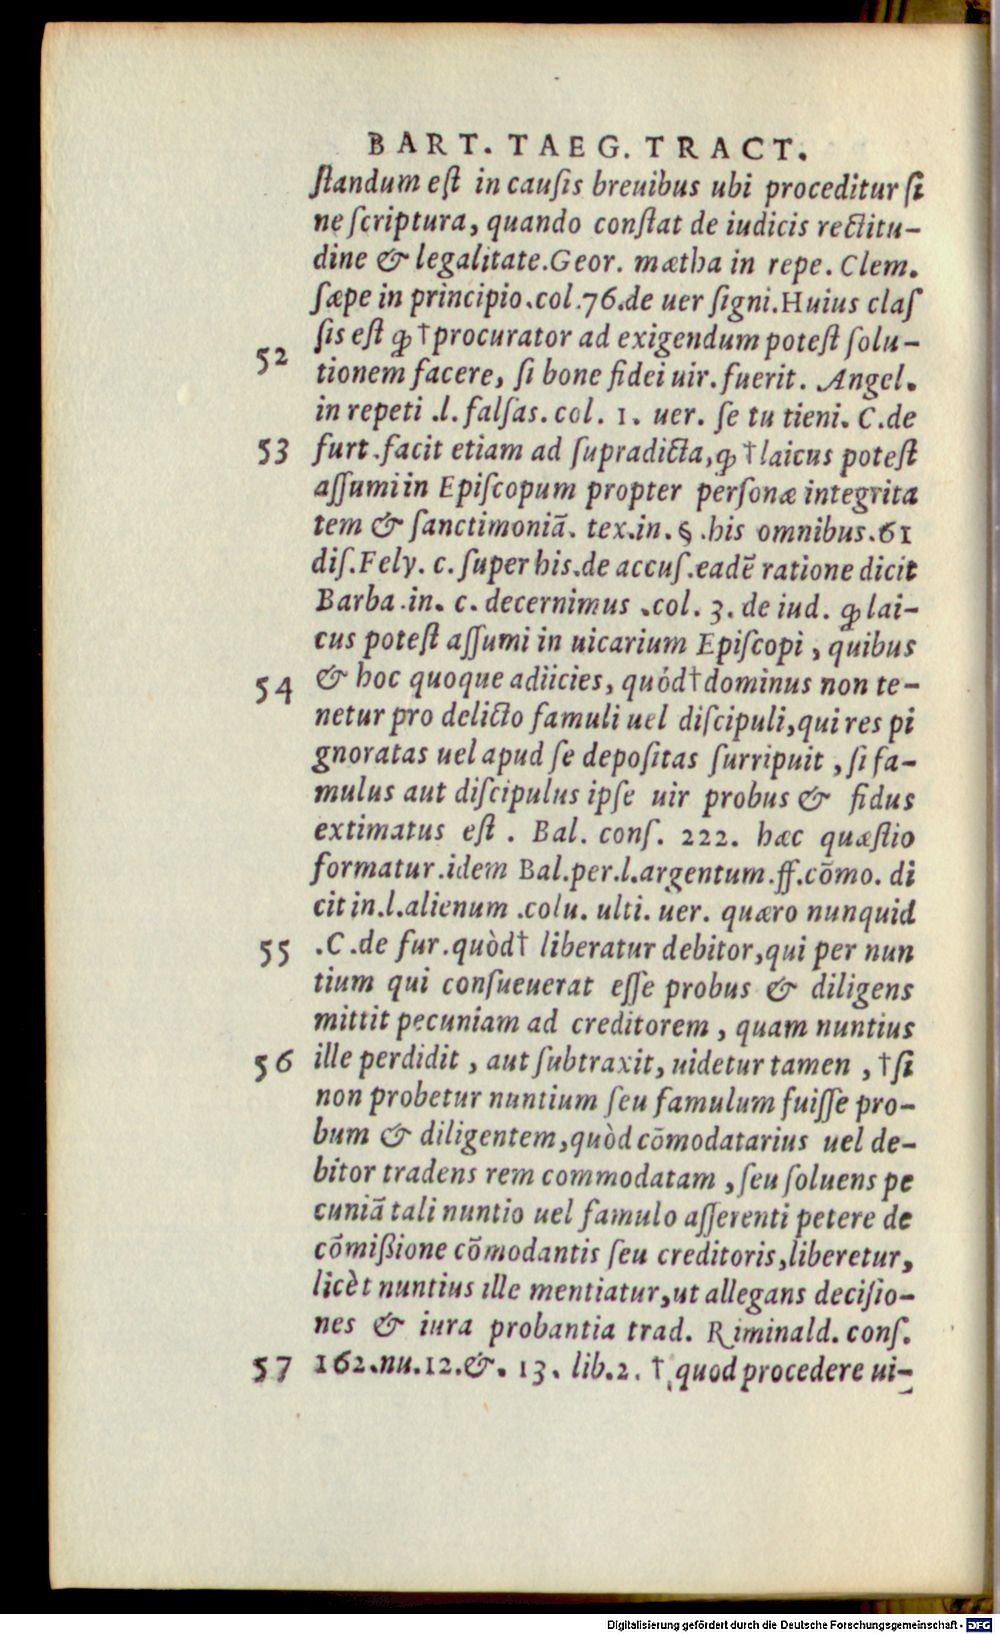 BART. TAEG. TRACT.
ſtandum eſt in cauſis breuibus ubi proceditur ſi
ne ſcriptura, quando conſtat de iudicis rectitu-
dine & legalitate.Geor. mætha in repe. Clem.
ſæpe in principio.col.76.de uer ſigni.Huius claſ
ſis eſt ꝙ †procurator ad exigendum poteſt ſolu-
52 tionem facere, ſi bone fidei uir.fuerit. Angel.
in repeti .l.falſas.col. 1. uer. ſe tu tieni. C.de
53 furt.facit etiam ad ſupradicta,ꝙ †laicus poteſt
aſſumi in Epiſcopum propter perſonæ integrita
tem & ſanctimoniã. tex.in.§.his omnibus.61
diſ.Fely. c.ſuper his.de accuſ.eadẽ ratione dicit
Barba.in. c. decernimus .col. 3. de iud. ꝙ lai-
cus poteſt aſſumi in uicarium Epiſcopi, quibus
54 & hoc quoque adiicies, quòd†dominus non te-
netur pro delicto famuli uel diſcipuli,qui res pi
gnoratas uel apud ſe depoſitas ſurripuit , ſi fa-
mulus aut diſcipulus ipſe uir probus & fidus
extimatus eſt . Bal. conſ. 222. hæc quæſtio
formatur.idem Bal.per.l.argentum.ff.cõmo. di
cit in.l.alienum .colu. ulti. uer. quæro nunquid
55 .C.de fur.quòd† liberatur debitor,qui per nun
tium qui conſueuerat eſſe probus & diligens
mittit pecuniam ad creditorem , quam nuntius
56 ille perdidit , aut ſubtraxit, uidetur tamen , †ſi
non probetur nuntium ſeu famulum fuiſſe pro-
bum & diligentem,quòd cõmodatarius uel de-
bitor tradens rem commodatam , ſeu ſoluens pe
cuniã tali nuntio uel famulo aſſerenti petere de
cõmißione cõmodantis ſeu creditoris,liberetur,
licèt nuntius ille mentiatur,ut allegans deciſio-
nes & iura probantia trad. Riminald. conſ.
57 162.nu.12.&. 13. lib.2. † quod procedere ui-
Digitalisierung gefördert durch die Deutsche Forschungsgemeinschaft - DFG